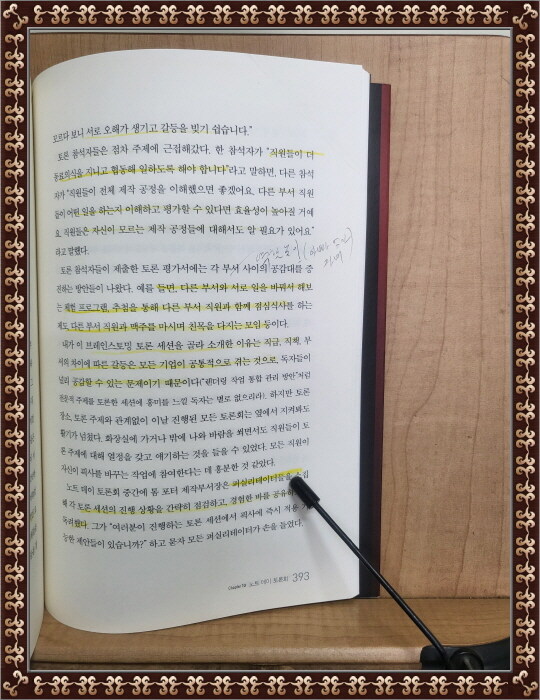 모르다 보니 서로 오해가 생기고 갈등을 빚기 쉽습니다."
토론 참석자들은 점차 주제에 근접해갔다. 한 참석자가 "직원들이 더
동료의식을 지니고 협동해 일하도록 해야 합니다"라고 말하면, 다른 참석
자가 "직원들이 전체 제작 공정을 이해했으면 좋겠어요. 다른 부서 직원
들이 어떤 일을 하는지 이해하고 평가할 수 있다면 효율성이 높아질 거예
요. 직원들은 자신이 모르는 제작 공정들에 대해서도 알 필요가 있어요"
라고 말했다.
토론 참석자들이 제출한 토론 평가서에는 각 부서 사이의 공감대를 증
진하는 방안들이 나왔다. 예를 들면, 다른 부서와 서로 일을 바꿔서 해보
는 체험 프로그램, 추첨을 통해 다른 부서 직원과 함께 점심식사를 하는
제도, 다른 부서 직원과 맥주를 마시며 친목을 다지는 모임 등이다.
내가 이 브레인스토밍 토론 세션을 골라 소개한 이유는 직급, 직책, 부
서의 차이에 따른 갈등은 모든 기업이 공통적으로 겪는 것으로, 독자들이
널리 공감할 수 있는 문제이기 때문이다("렌더링 작업 통합 관리 방안"처럼
전문적 주제를 토론한 세션에 흥미를 느낄 독자는 별로 없으리라). 하지만 토론
장소, 토론 주제와 관계없이 이날 진행된 모든 토론회는 옆에서 지켜봐도
활기가 넘쳤다. 화장실에 가거나 밖에 나와 바람을 쐬면서도 직원들이 토
론 주제에 대해 열정을 갖고 얘기하는 것을 들을 수 있었다. 모든 직원이
자신이 회사를 바꾸는 작업에 참여한다는 데 흥분한 것 같았다.
노트 데이 토론회 중간에 톰 포터 제작부서장은 퍼실리테이터들을
해 각 토론 세션의 진행 상황을 간략히 점검하고, 경험한 바를 공유하
독려했다. 그가 "여러분이 진행하는 토론 세션에서 회사에 즉시 적용
능한 제안들이 있습니까?" 하고 묻자 모든 퍼실리테이터가 손을 들었다.
Chapter 13 노트 데이 토론회 393